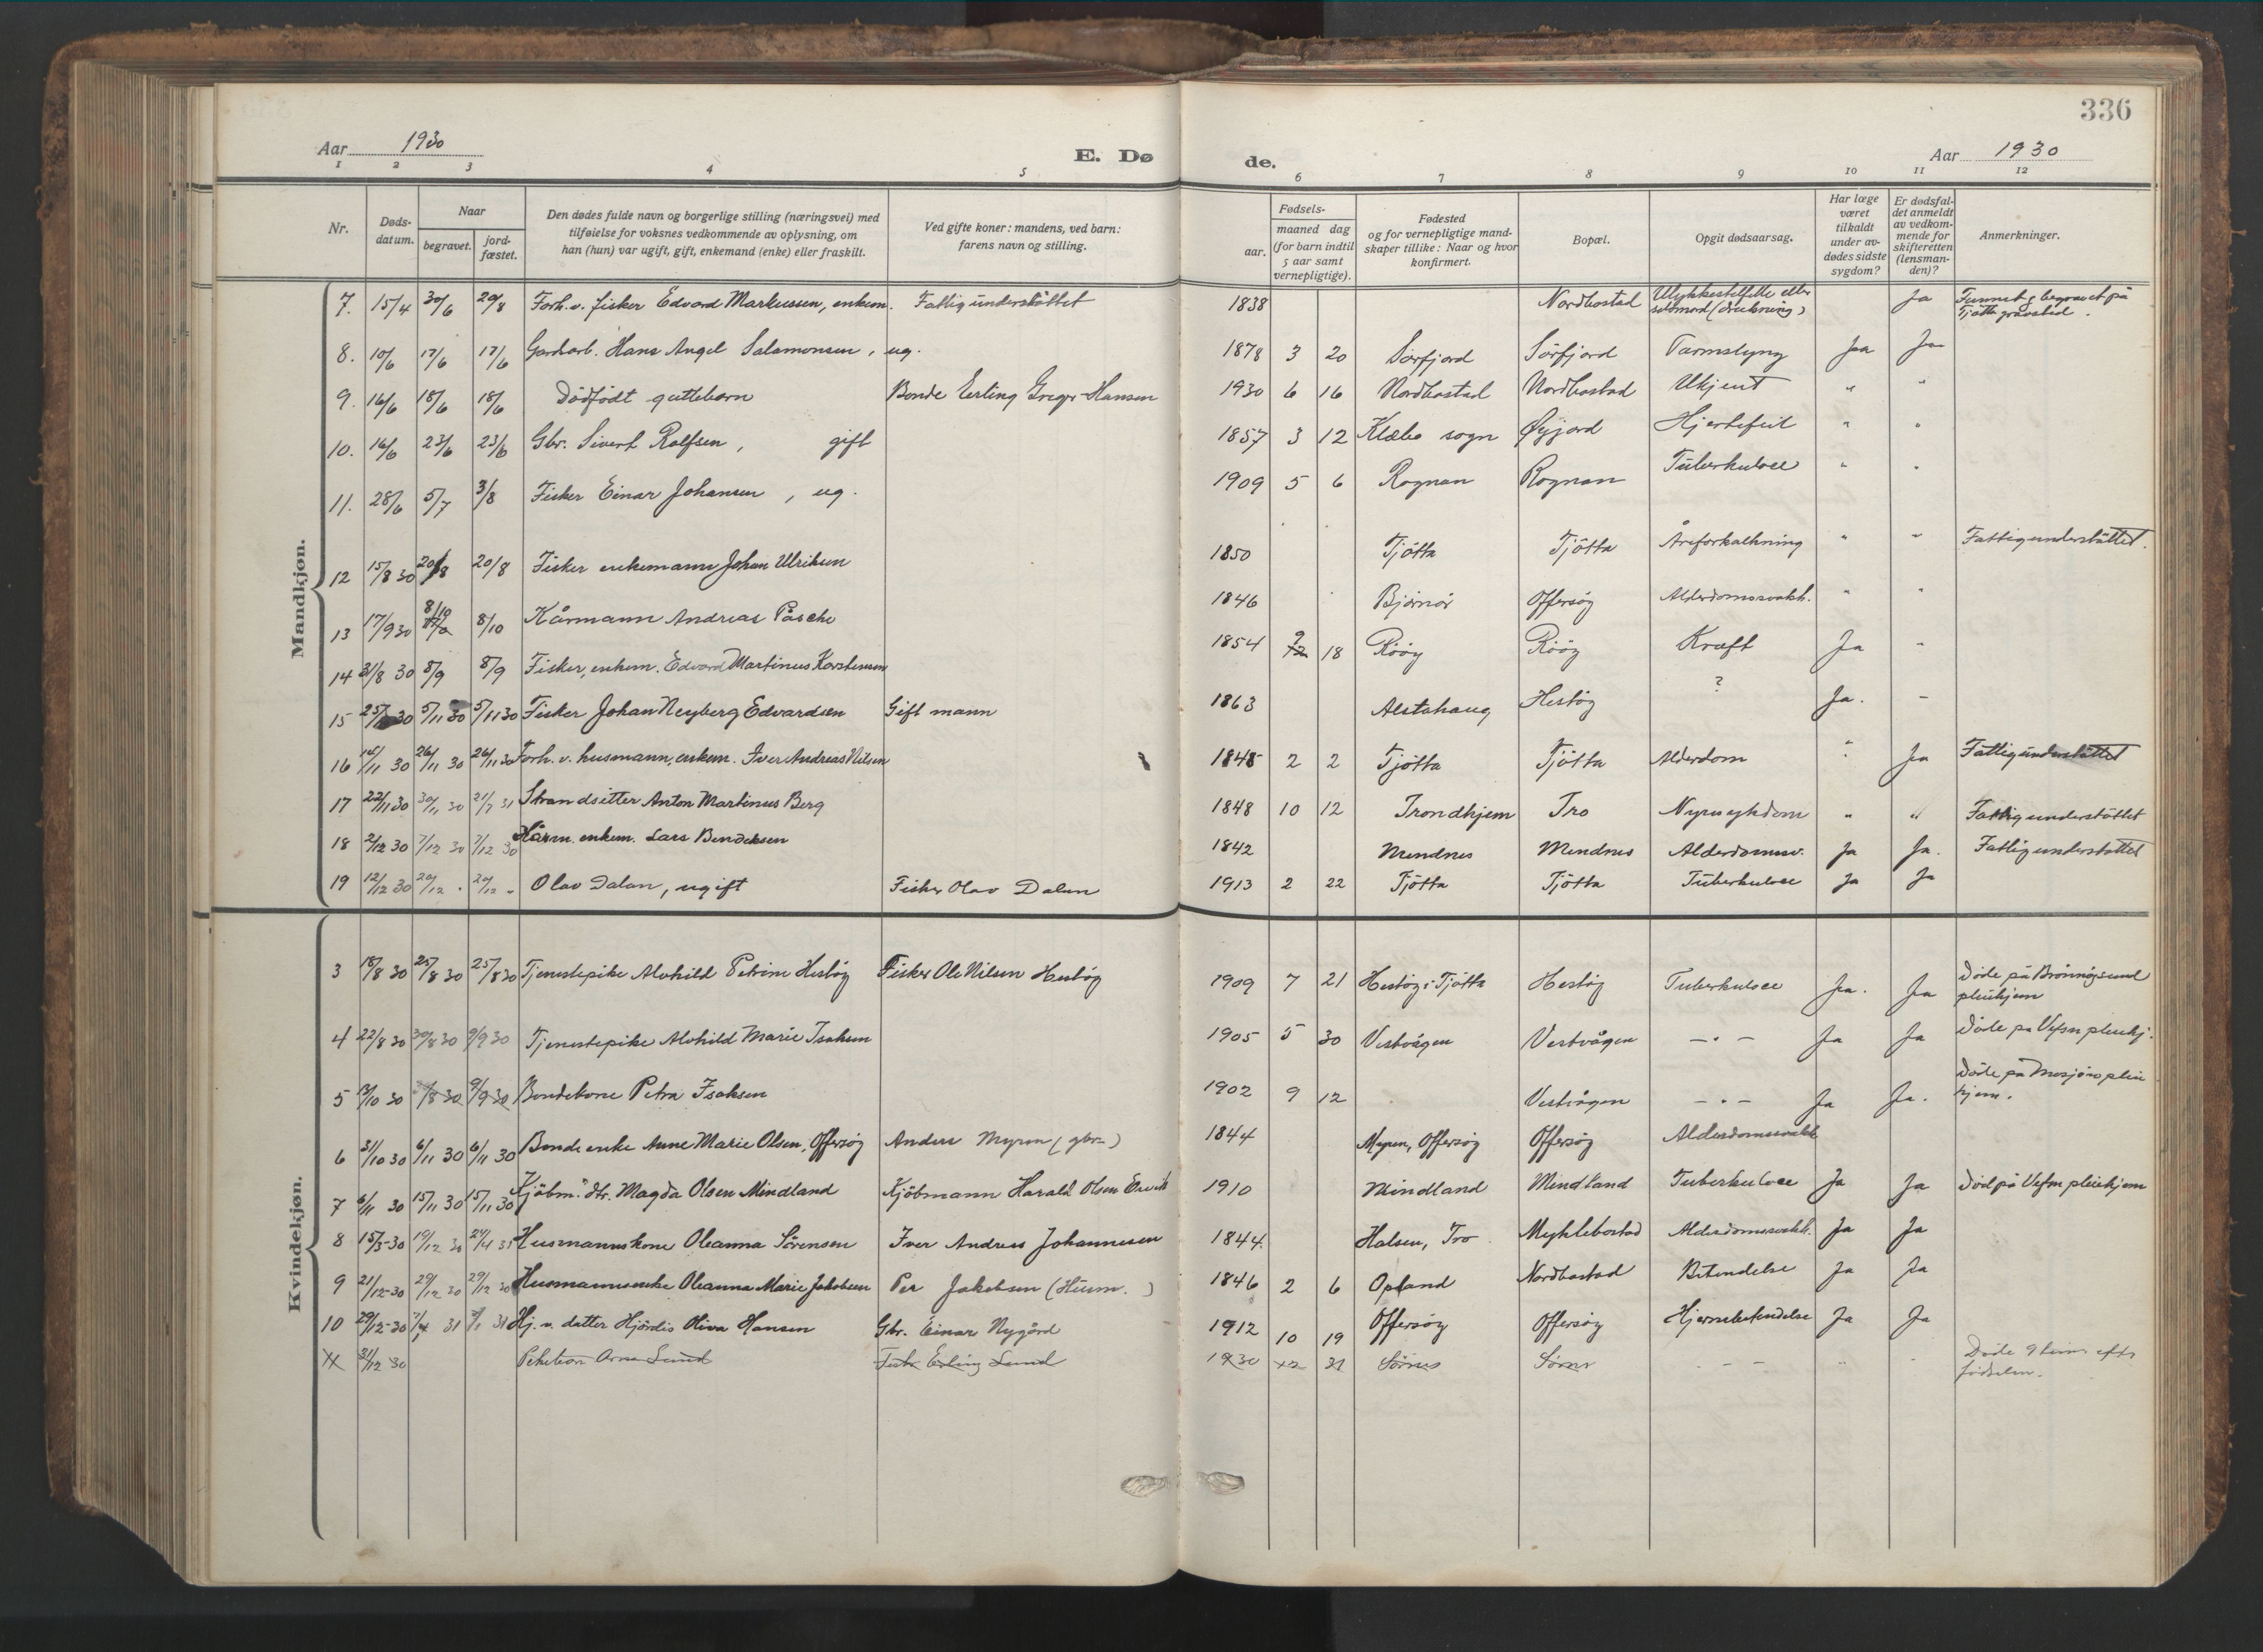 336
Aar 1930
E. Dø
de.
Aar 1930
1 2 3 4 5 6 7 8 9 10 11 12
Nr.
Døds-
datum.
Naar
begravet.
jord-
fæstet.
Den dødes fulde navn og borgerlige stilling (næringsvei) med
tilføielse for voksnes vedkommende av oplysning, om
han (hun) var ugift, gift, enkemand (enke) eller fraskilt.
Ved gifte koner: mandens, ved barn:
farens navn og stilling.
Fødsels-
aar.
maaned dag
(for barn indtil
5 aar samt
vernepligtige).
Fødested
og for vernepligtige mand-
skaper tillike: Naar og hvor
konfirmert.
Bopæl.
Opgit dødsaarsag.
Har læge
været
tilkaldt
under av-
dødes sidste
sygdom?
Er dødsfal-
det anmeldt
av vedkom-
mende for
skifteretten
(lensman-
den)?
Anmerkninger.
Mandkjøn.
7. 15/4 30/6 20/8 Forh. v. fisker Edvard Markussen, enkem. Fattigunderstøttet 1838 Nordbostad Ulykkestilfelle eller selvmord (drukning) Ja Funnet & begravet på Tjøtta gravsted.
8. 10/6 17/6 17/6 Gardarb. Hans Angel Salamonsen, ug. 1878 3 20 Sørfjord Sørfjord Tarmslyng Ja Ja
9. 16/6 18/6 18/6 Dødfødt guttebarn Bonde Erling Greger Hansen 1930 6 16 Nordbostad Nordbostad Ukjent " "
10. 16/6 23/6 23/6 Gbr. Sivert Rolfsen, gift 1857 3 12 Klæbo sogn Øyjord Hjertefeil " "
11. 28/6 5/7 3/8 Fisker Einar Johansen, ug. 1909 5 6 Rognan Rognan Tuberkulose " "
12 15/8 30 20/8 20/8 Fisker enkemann Johan Ulriksen 1850 Tjøtta Tjøtta Åreforkalkning " " Fattigunderstøttet.
13 17/9 30 8/10 8/10 Kårmann Andreas Påsche 1846 Bjørnör Offersøy Alderdomssvakh. " "
14 31/8 30 8/9 8/9 Fisker, enkem. Edvard Martinus Karstensen 1854 18 Røøy Røøy Kreft Ja "
15 30 5/11 30 5/11 30 Fisker Johan Neyberg Edvardsen Gift mann 1863 Alstahaug Hestøy ? Ja. -
16 14/11 30 26/11 30 26/11 30 Forh. v. husmann, enkem. Iver Andreas Nilsen 1845 2 2 Tjøtta Tjøtta Alderdom " Ja Fattigunderstøttet
17 22/11 30 30/11 30 21/7 31 Strandsitter Anton Martinus Berg 1848 10 12 Trondhjem Tro Nyresykdom " " Fattigunderstøttet
18 2/12 30 7/12 30 7/12 30 Kårm. enkem. Lars Bendeksen 1842 Mindnes Mindnes Alderdomssv. Ja Ja. Fattigunderstøttet
19 12/12 30 20/12 " 20/12 " Olav Dalan, ugift Fisker Olav Dalen 1913 2 22 Tjøtta Tjøtta Tuberkulose Ja Ja
Kvindekjøn.
3 18/8 30 25/8 30 25/8 30 Tjenestepike Alvhild Petrine Hestøy Fisker Ole Nilsen Hestøy 1909 7 21 Hestøy i Tjøtta Hestøy Tuberkulose Ja. Ja Døde på Brönnöysund pleiehjem
4 22/8 30 30/8 30 9/9 30 Tjenestepike Alvhild Marie Isaksen 1905 5 30 Vestvågen Vestvågen - " - Ja Ja Døde på Vefsn pleiehj.
5 /10 30 /8 30 9/9 30 Bondekone Petra Isaksen 1902 9 12 Vestvågen - " - Ja Ja. Døde på Mosjøen pleiehjem.
6 31/10 30 6/11 30 6/11 30 Bondeenke Anne Marie Olsen, Offersøy Anders Myren (gbr.) 1844 Myren, Offersøy Offersøy Alderdomssvakh.
7 6/11 30 15/11 30 15/11 30 Kjøbm. dtr. Magda Olsen Mindland Kjøbmann Harald Olsen 1910 Mindland Mindland Tuberkulose Ja Ja Død på Vefsn pleiehjem
8 15/3-30 19/12 30 24/4 31 Husmannskone Oleanna Sørensen Iver Andreas Johannesen 1844. Halsen, Tro Myklebostad Alderdomssvakh. Ja Ja
9 21/12-30 29/12 30 29/12 30 Husmannsenke Oleanna Marie Jakobsen Per Jakobsen (Husm.) 1846 2 6 Opland Nordbostad Betendelse Ja Ja
10 29/12-30 7/4 31 31 Hj. v. datter Hjördis Oliva Hansen Gbr. Einar Nygård 1912 10 19 Offersøy Offersøy Hjernebetendelse Ja Ja
31/12 30 Pikebarn Arna Lund Fisk. Erling Lund 1930 12 31 Sørnes Sørnes - - " " Døde 9 timer efter fødselen.